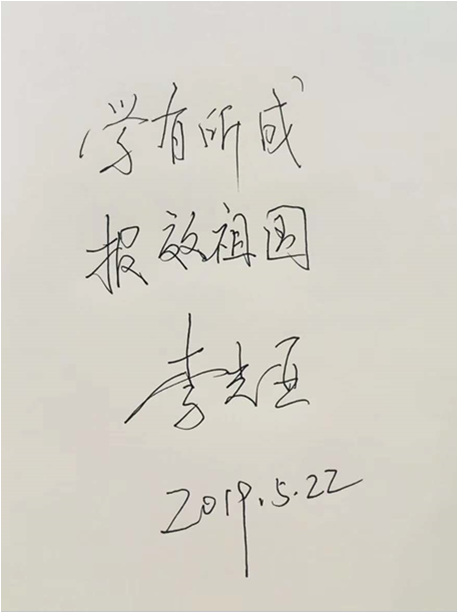 学有所成
报效祖国
李先亚
2019.5.22